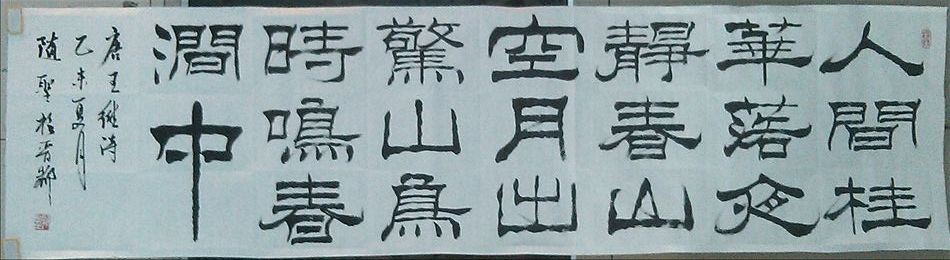 人間桂
華落夜
靜春山
空月出
驚山鳥
時鳴春
澗中
唐王維詩
乙未夏月
隨聖於晉